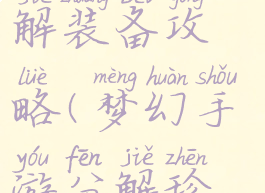 解装备攻
lüè mèng huàn shǒu
略(梦幻手
yóu fēn jiě zhēn
游分解珍